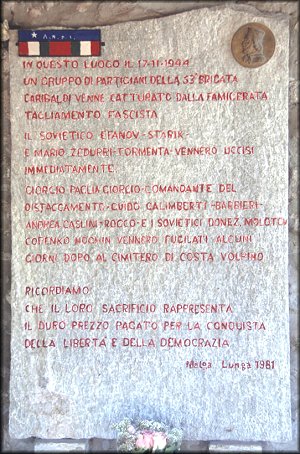 A.N.P.I.
IN QUESTO LUOGO IL 17-11-1944
UN GRUPPO DI PARTIGIANI DELLA 53ª BRIGATA
GARIBALDI VENNE CATTURATO DALLA FAMIGERATA
TAGLIAMENTO FASCISTA
IL SOVIETICO EPANOV-STARIK-
E MARIO-ZEDURRI-TORMENTA-VENNERO UCCISI
IMMEDIATAMENTE
GIORGIO-PAGLIA-GIORGIO-COMANDANTE DEL
DISTACCAMENTO-GUIDO GALIMBERTI-BARBIERI-
ANDREA CASLINI-ROCCO-E I SOVIETICI DONEZ, MOLOTCH
COPENKO NOGHIN VENNERO FUCILATI ALCUNI
GIORNI DOPO AL CIMITERO DI COSTA VOLPINO
RICORDIAMO:
CHE IL LORO SACRIFICIO RAPPRESENTA
IL DURO PREZZO PAGATO PER LA CONQUISTA
DELLA LIBERTA E DELLA DEMOCRAZIA
Malga Lunga 1981